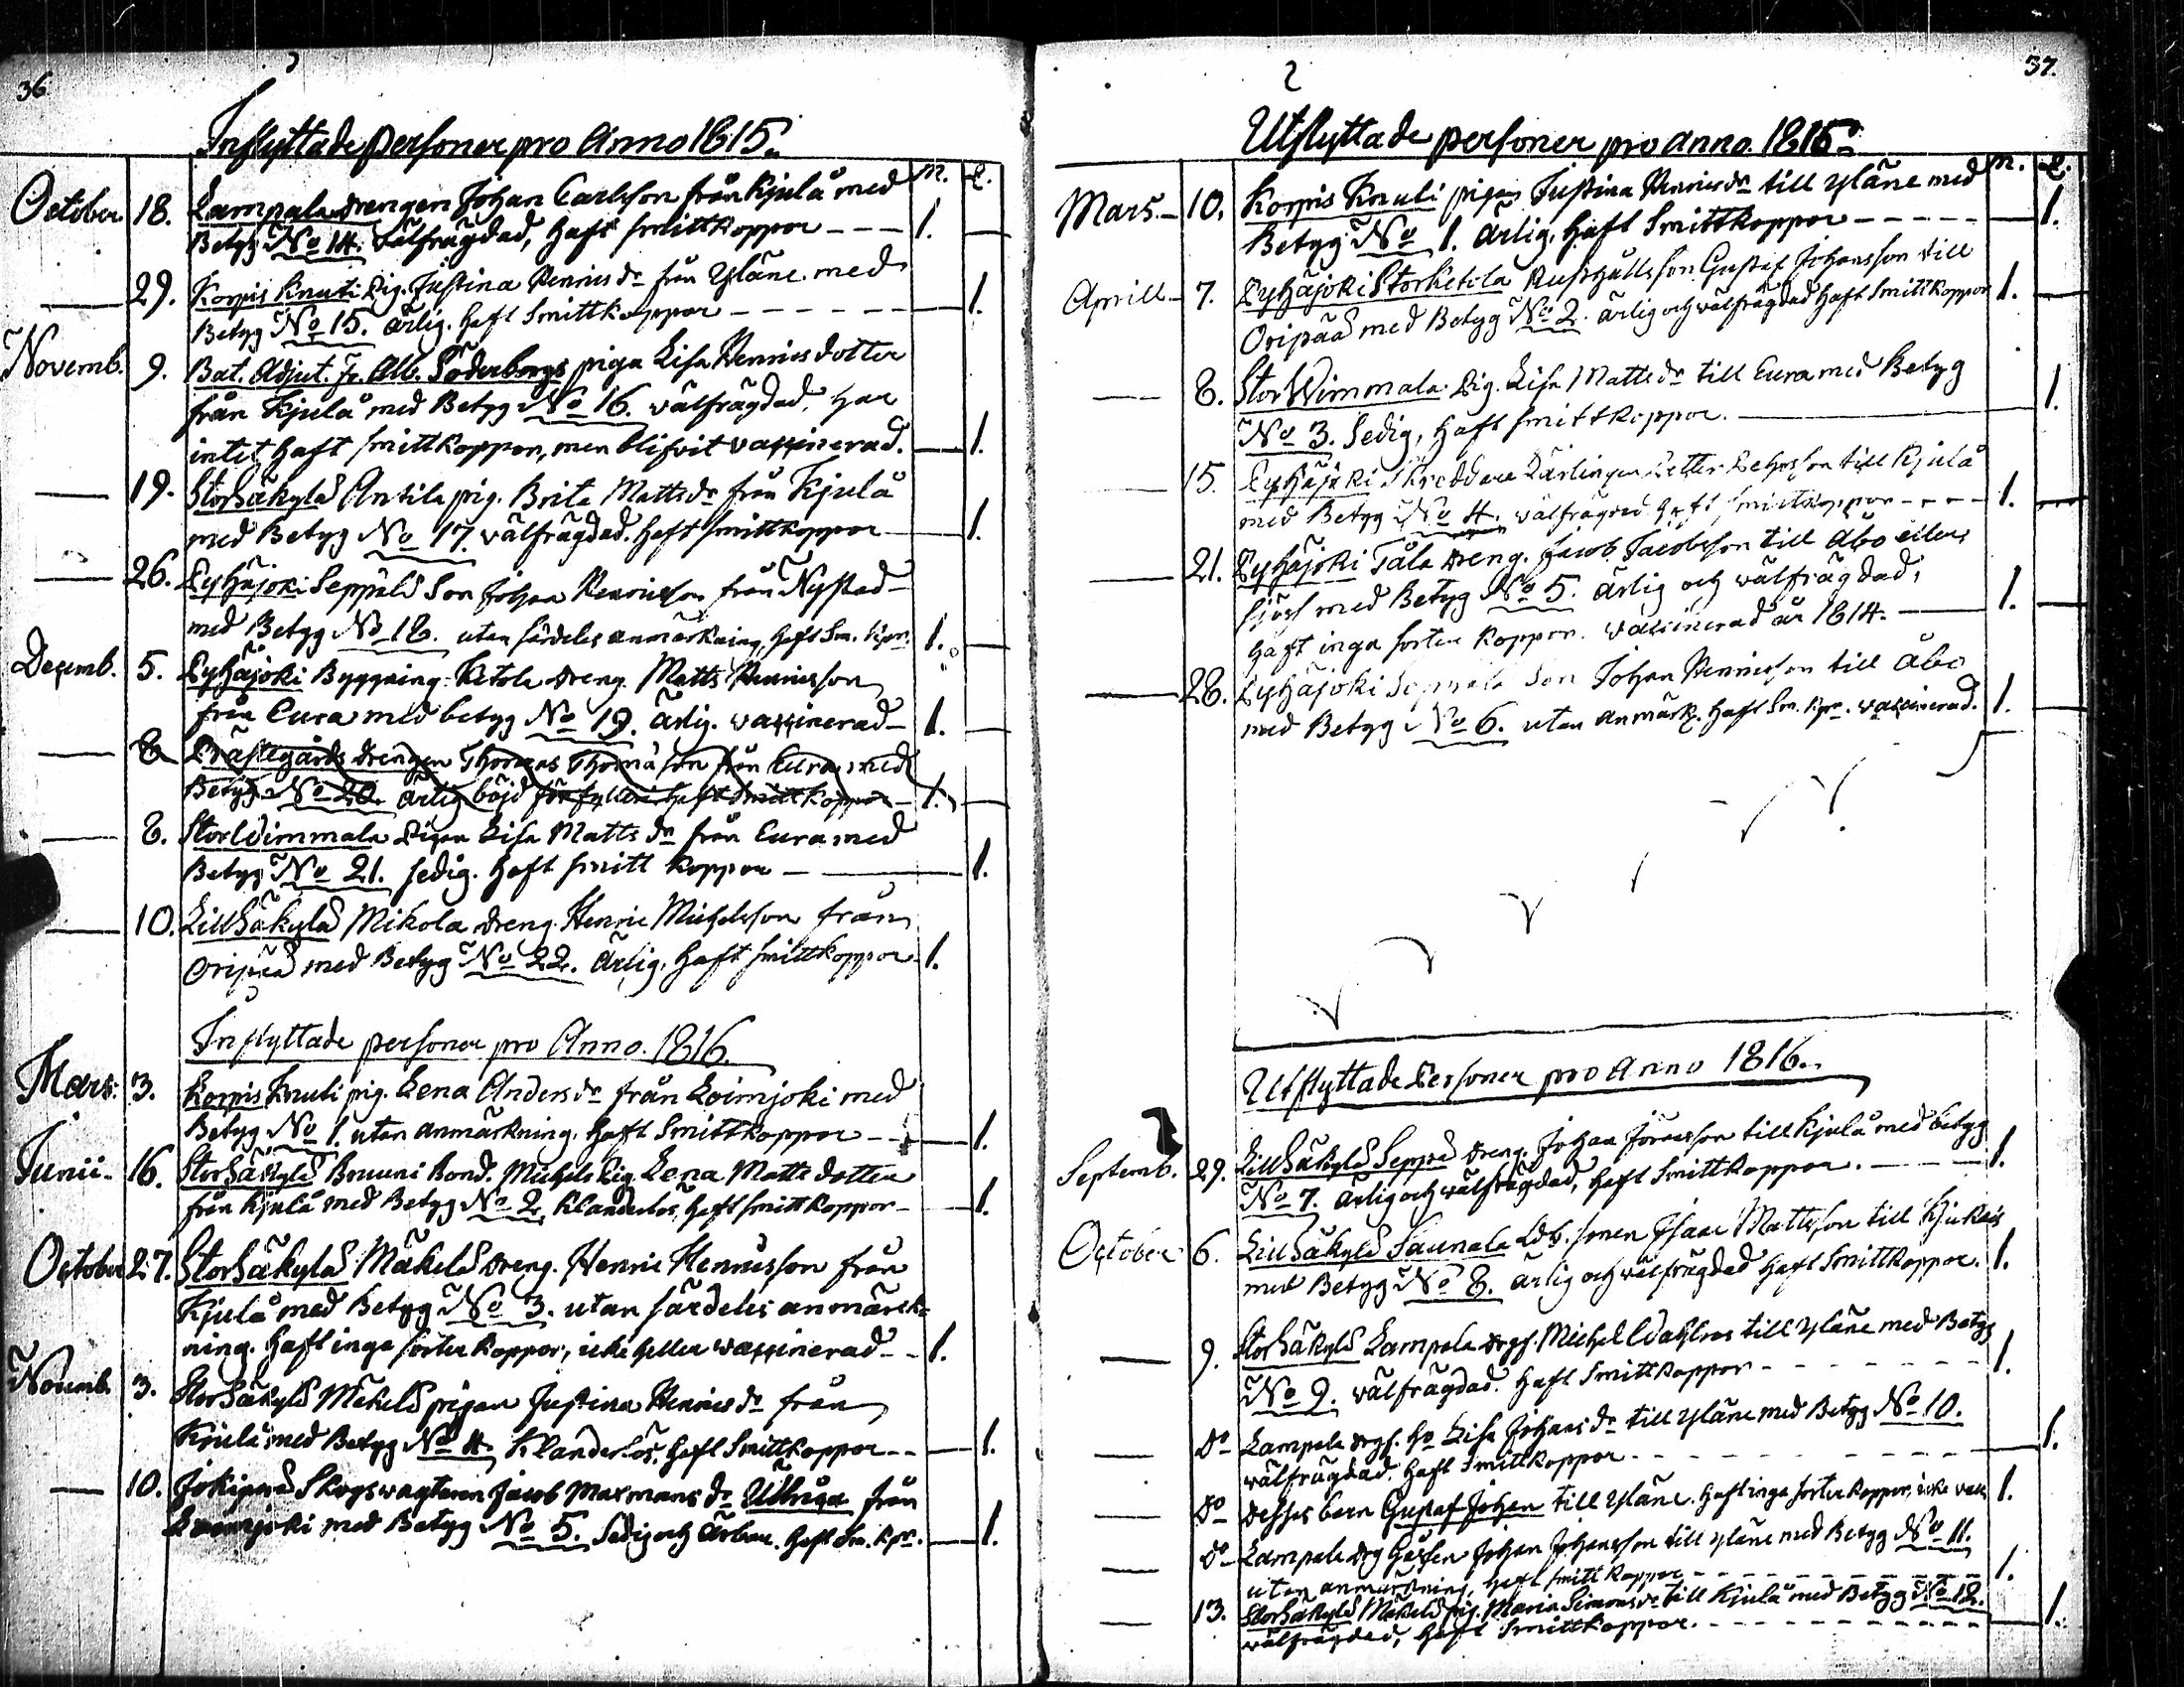 36.
Inflyttade personer pro Anno 1815.
M. Q.
October 18. Lampala drengen Johan Carlsson från Kjulå med
Betyg No 14. välfrägdad, haft smittkoppor - - - 1.
29. Korpis Knuti Pig. Justina Henricsdr från Yläne med
Betyg No 15. ärlig. haft Smittkoppor - - - 1.
Novemb. 9. Bat. Adjut. Fr. Alb. Söderborgs piga Lisa Henricsdotter
från Kjulå med Betyg No 16. välfrägdad, har
intet haft smittkoppor, men blifvit vaccinerad. 1.
19. StorSäkylä Antila pig. Brita Mattsdr från Kjulå
med Betyg No 17. välfrägdad. haft smittkoppor 1.
26. Pyhäjoki Seppälä Son Johan Henricsson från Nystad
med Betyg No 18. utan särdeles anmärkning, haft Sm. kpr. 1.
Decemb. 5. Pyhäjoki Byggning-Ketola dreng Matts Henricsson
från Eura med betyg No 19. ärlig. vaccinerad 1.
8. Prästegårds drengen Thomas Thomasson från Eura med
Betyg No 20. ärlig böjd för fylleri haft Smittkoppor 1.
8. StorWimmala Pigan Lisa Matts dr från Eura med
Betyg No 21. sedig. haft smitt koppor 1.
10. LillSäkylä Mikola dreng Henric Michelsson från
Oripää med Betyg No 22. Ärlig, haft smittkoppor 1.
Inflyttade personer pro Anno. 1816.
Mars. 3. Korpis Knuti pig. Lena Andersdr från Loimjoki med
Betyg No 1. utan anmärkning. haft Smittkoppor 1.
Junii. 16. StorSäkylä Bruuni Bond. Michels Pig Lena Matts dotter
från Kjulå med Betyg No 2. Klanderlös, haft smittkoppor 1.
October 27. StorSäkylä Mäkelä dreng. Henric Henricsson från
Kjulå med Betyg No 3. utan särdeles anmärck-
ning. haft inga sorter koppor, icke heller vaccinerad 1.
Novemb. 3. StorSäkylä Mäkelä pigan Justina Henricsdr från
Kjulå med Betyg No 4. Klanderlös, haft Smittkoppor 1.
10. Jokipää Skogswagtaren Jacob Maxmans dr Ulbrica från
Loimjoki med Betyg No 5. Sedig och ärbar. haft Sm. kpr. 1.
37.
Utflyttade personer pro anno. 1815.
M. Q.
Mars. 10. Korpis Knuti pigan Justina Henricsdr till Yläne med
Betyg No 1. ärlig, haft Smittkoppor - - - 1.
Aprill 7. Pyhäjoki Storketola Rusthålls son Gustaf Johansson till
Oripää med Betyg No 2. ärlig och välfrägdad haft Smittkoppor 1.
8. StorWimmala Pig. Lisa Mattsdr till Eura med Betyg
No 3. Sedig, haft smittkoppor. 1.
15. Pyhäjoki Skreddare Lärlingen Petter Petersson till Kjulå
med Betyg No 4. välfrägdad haft smittkoppor 1.
21. Pyhäjoki Tåla dreng. Jacob Jacobsson till Åbo eller
sjöss med Betyg No 5. ärlig och välfrägdad,
haft inga sorter koppor. vaccinerad år 1814. 1.
28. Pyhäjoki Seppälä Son Johan Henricsson till Åbo
med Betyg No 6. utan anmärk. haft Sm. kpr. vaccinerad. 1.
Utflyttade Personer pro Anno 1816.
Septemb. 29. LillSäkylä Seppä dreng. Johan Jöransson till Kjulå med betyg
No 7. ärlig och välfrägdad, haft Smittkoppor. 1.
October 6. LillSäkylä Saunala Ldb. sonen Isaac Mattsson till Hjukais
med Betyg No 8. ärlig och välfrägdad haft Smittkoppor. 1.
9. StorSäkylä Lampala drgs. Michel Wahlros till Yläne med Betyg
No 9. välfrägdad. haft Smittkoppor 1.
Do Lampala drgs. ho Lisa Johansdr till Yläne med Betyg No 10.
välfrägdad. haft Smittkoppor 1.
Do dessas barn Gustaf Johan till Yläne. haft inga sorter koppor, icke vacc. 1.
Do Lampala drg Gåssen Johan Johansson till Yläne med Betyg No 11.
utan anmärkning, haft smitt koppor 1.
13. StorSäkylä Mäkelä pig. Maria Simonsdr till Kjulå med Betyg No 12.
välfrägdad, haft Smittkoppor. 1.